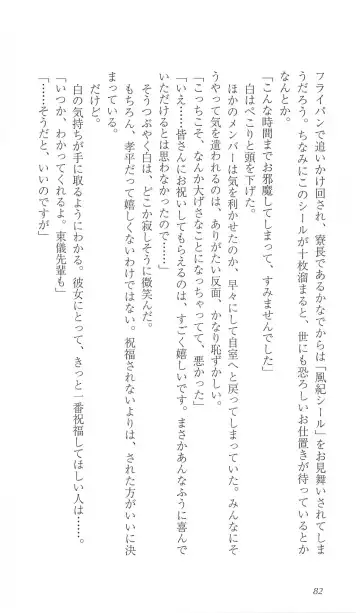 フライパンで追いかけ回され、寮長であるかなでからは「風紀シール」をお見舞いされてしま
うだろう。ちなみにこのシールが十枚溜まると、世にも恐ろしいお仕置きが待っているとか
なんとか。
「こんな時間までお邪魔してしまって、すみませんでした」
白はぺこりと頭を下げた。
ほかのメンバーは気を利かせたのか、早々にして自室へと戻ってしまっていた。みんなにそ
うやって気を遣われるのは、ありがたい反面、かなり恥ずかしい。
「こっちこそ、なんか大げさなことになっちゃってて、悪かった」
「いえ……皆さんにお祝いしてもらえるのは、すごく嬉しいです。まさかあんなふうに喜んで
いただけるとは思わなかったので……」
そうつぶやく白は、どこか寂しそうに微笑んだ。
もちろん、孝平だって嬉しくないわけではない。祝福されないよりは、された方がいいに決
まっている。
だけど。
白の気持ちが手に取るようにわかる。彼女にとって、きっと一番祝福してほしい人は……。
「いつか、わかってくれるよ。東儀先輩も」
「……そうだと、いいのですが」
82